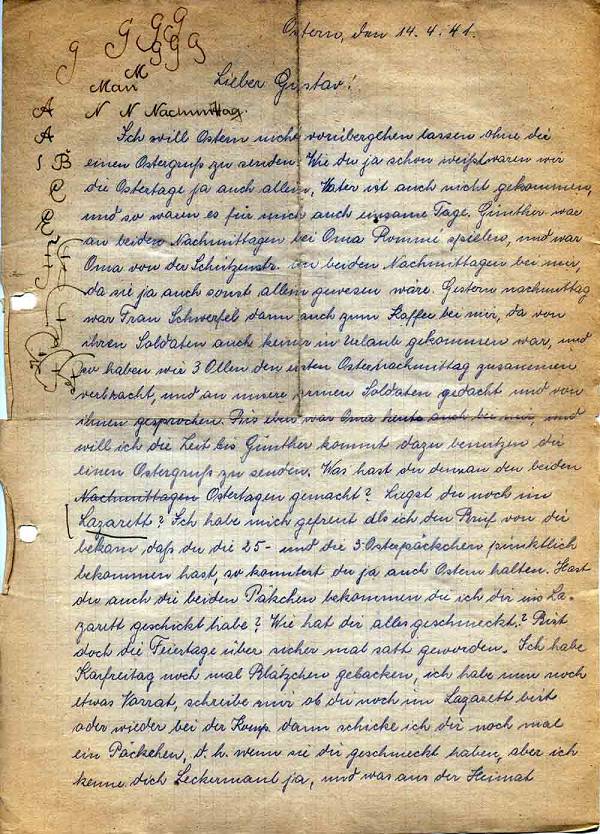 g G G g G g g g
Ostern, den 14. 4. 41.
M
Man
Lieber Gustav!
A N N Nachmittag.
A
1 B
C
C
Ich will Ostern nicht vorübergehen lassen ohne dir
einen Ostergruß zu senden. Wie du ja schon weißt waren wir
die Ostertage ja auch allein, Vater ist auch nicht gekommen,
und so waren es für mich auch einsame Tage. Günther war
an beiden Nachmittagen bei Oma Rommé spielen, und war
Oma von der Schützenstr. an beiden Nachmittagen bei mir,
da sie ja auch sonst allein gewesen wäre. Gestern nachmittag
war Frau Schwerfel dann auch zum Kaffee bei mir, da von
ihren Soldaten auch keiner in Urlaub gekommen war, und
so haben wir 3 Ollen den ersten Osternachmittag zusammen
verbracht, und an unsere armen Soldaten gedacht und von
ihnen gesprochen. Bis eben war Oma heute auch bei mir, und
will ich die Zeit bis Günther kommt dazu benutzen dir
einen Ostergruß zu senden. Was hast du denn an den beiden
Nachmittagen Ostertagen gemacht? Liegst du noch im
Lazarett? Ich habe mich gefreut als ich den Brief von dir
bekam, daß du die 25- und die 3 Osterpäckchen pünktlich
bekommen hast, so konntest du ja auch Ostern halten. Hast
du auch die beiden Päkchen bekommen die ich dir ins La-
zarett geschickt habe? Wie hat dir alles geschmeckt? Bist
doch die Feiertage über sicher mal satt geworden. Ich habe
Karfreitag noch mal Plätzchen gebacken, ich habe nun noch
etwas Vorrat, schreibe mir ob du noch im Lazarett bist
oder wieder bei der Komp. dann schicke ich dir noch mal
ein Päckchen, d. h. wenn sie dir geschmeckt haben, aber ich
kenne dich Leckermaul ja, und was aus der Heimat